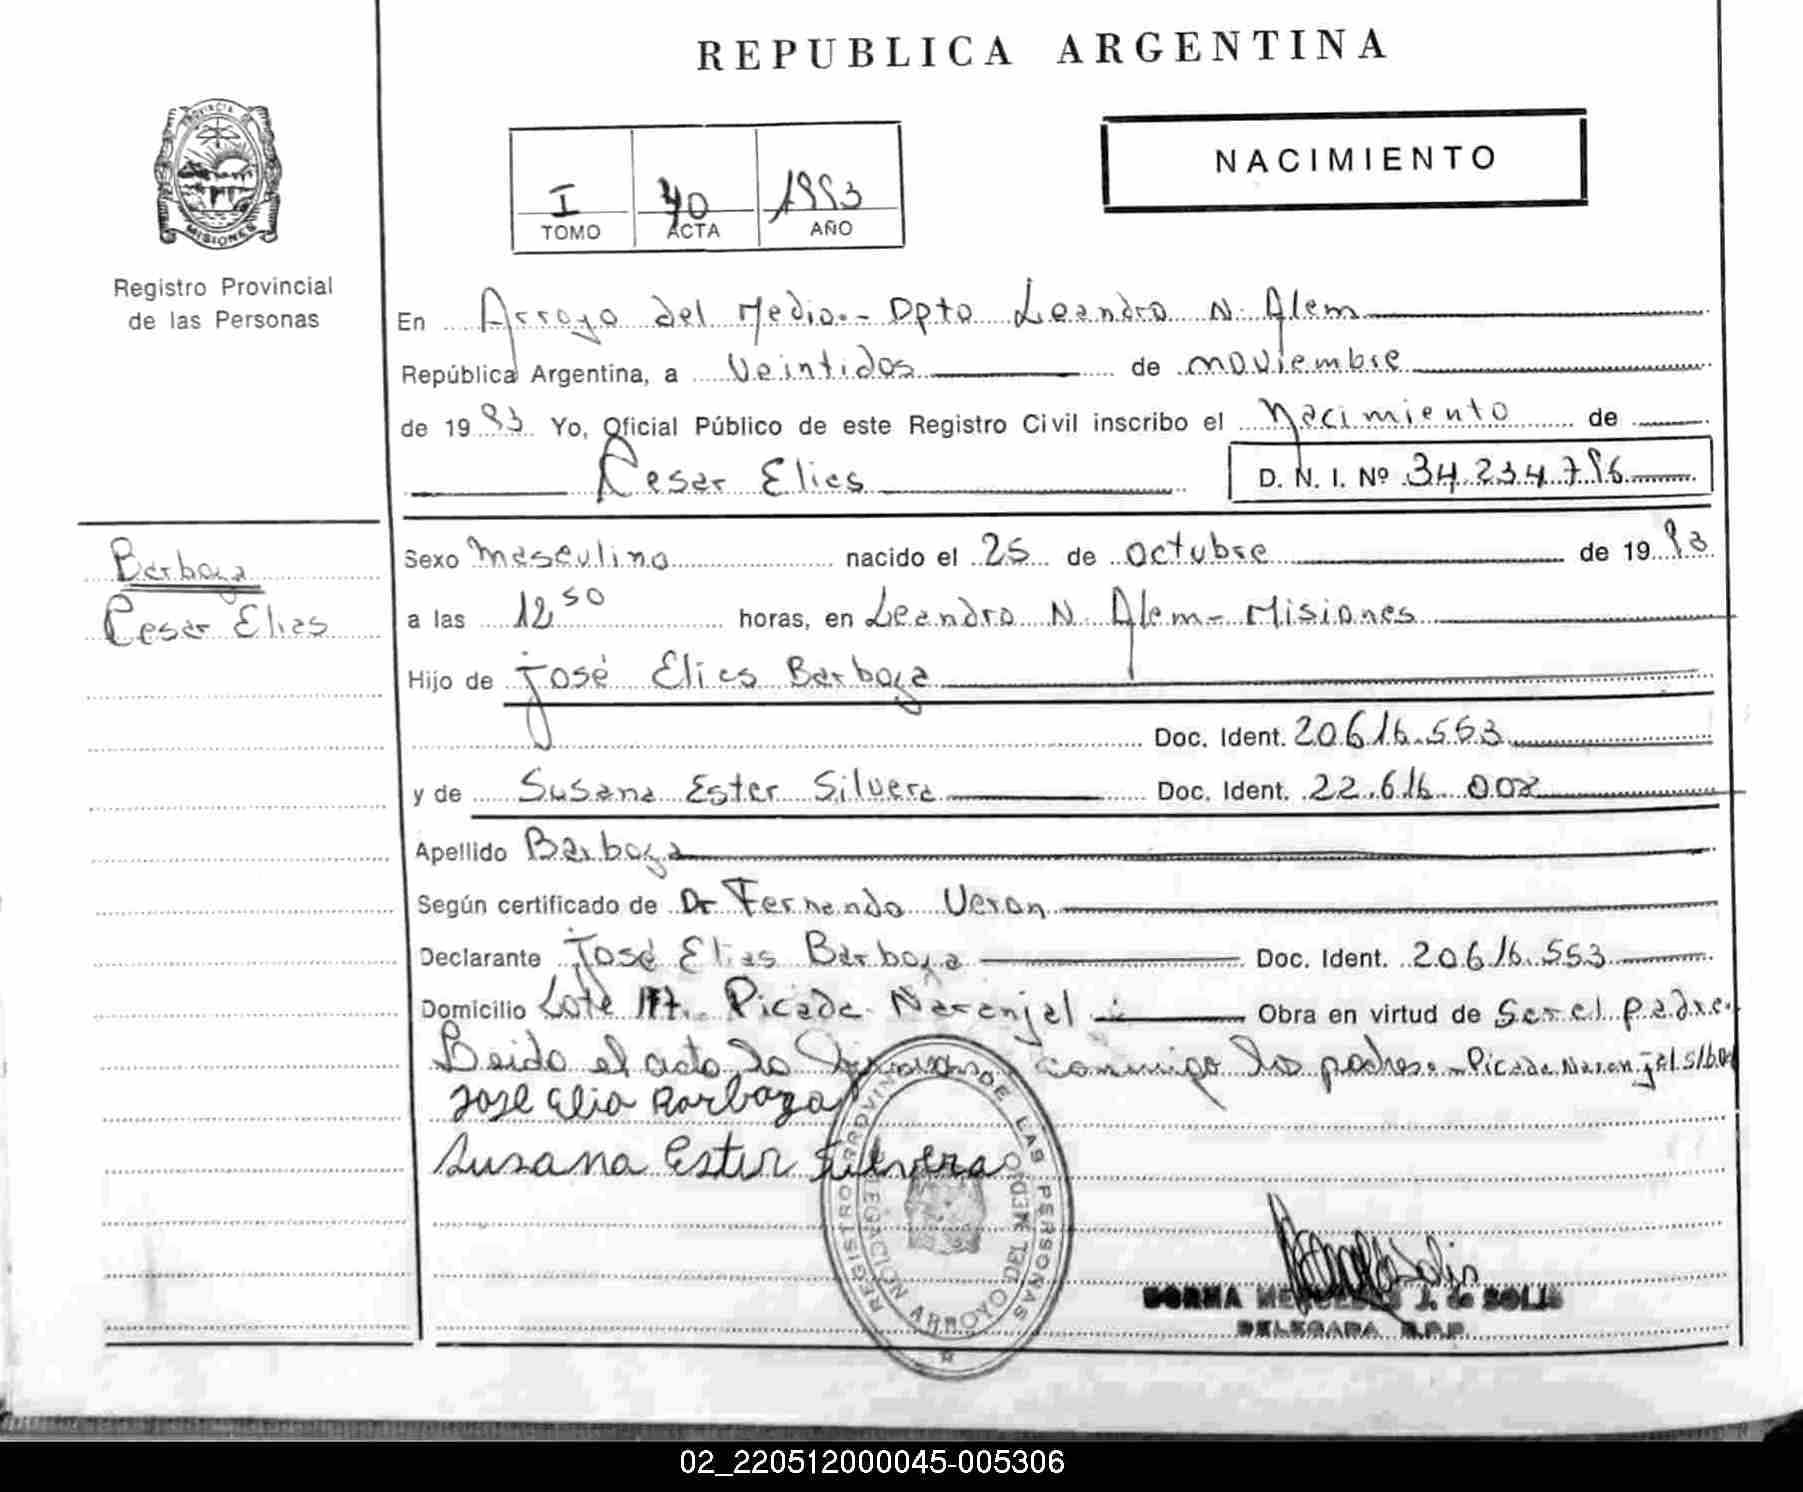 REPUBLICA ARGENTINA
NACIMIENTO
PROVINCIA DE
MISIONES
Registro Provincial
de las Personas
I 40 1993
TOMO ACTA AÑO
En Arroyo del Medio.- Dpto Leandro N. Alem
República Argentina, a Veintidos de noviembre
de 1993 Yo, Oficial Público de este Registro Civil inscribo el Nacimiento de
Cesar Elias D. N. I. Nº 34.234.796
Barboza
Cesar Elias
Sexo Masculino nacido el 25 de octubre de 1993
a las 12 50 horas, en Leandro N. Alem - Misiones
Hijo de José Elias Barboza
Doc. Ident. 20.616.553
y de Susana Ester Silvera Doc. Ident. 22.616.002
Apellido Barboza
Según certificado de Dr Fernando Veron
Declarante José Elias Barboza Doc. Ident. 20.616.553
Domicilio Lote Picada Naranjal Obra en virtud de Ser el padre.
Leido el acta lo firman conmigo los padres.- Picada Naranjal
Jose Elia Barboza
Susana Ester Silvera
REGISTRO PROVINCIAL DE LAS PERSONAS
DELEGACION ARROYO DEL MEDIO
NORMA MERCEDES J. de SOLIS
DELEGADA R.P.P.
02_220512000045-005306